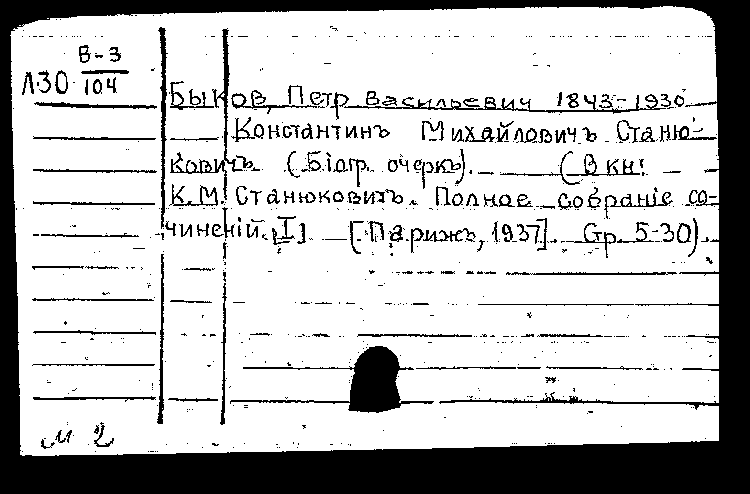 В-3
Л30 104
Быков, Петр Васильевич 1843-1930
Константинъ Михайловичъ Станю-
ковичъ (Біогр. очеркъ). (В кн:
К.М. Станюковичъ. Полное собраніе со-
чиненій. [I] [Париж, 1937]. Стр. 5-30).
м 2